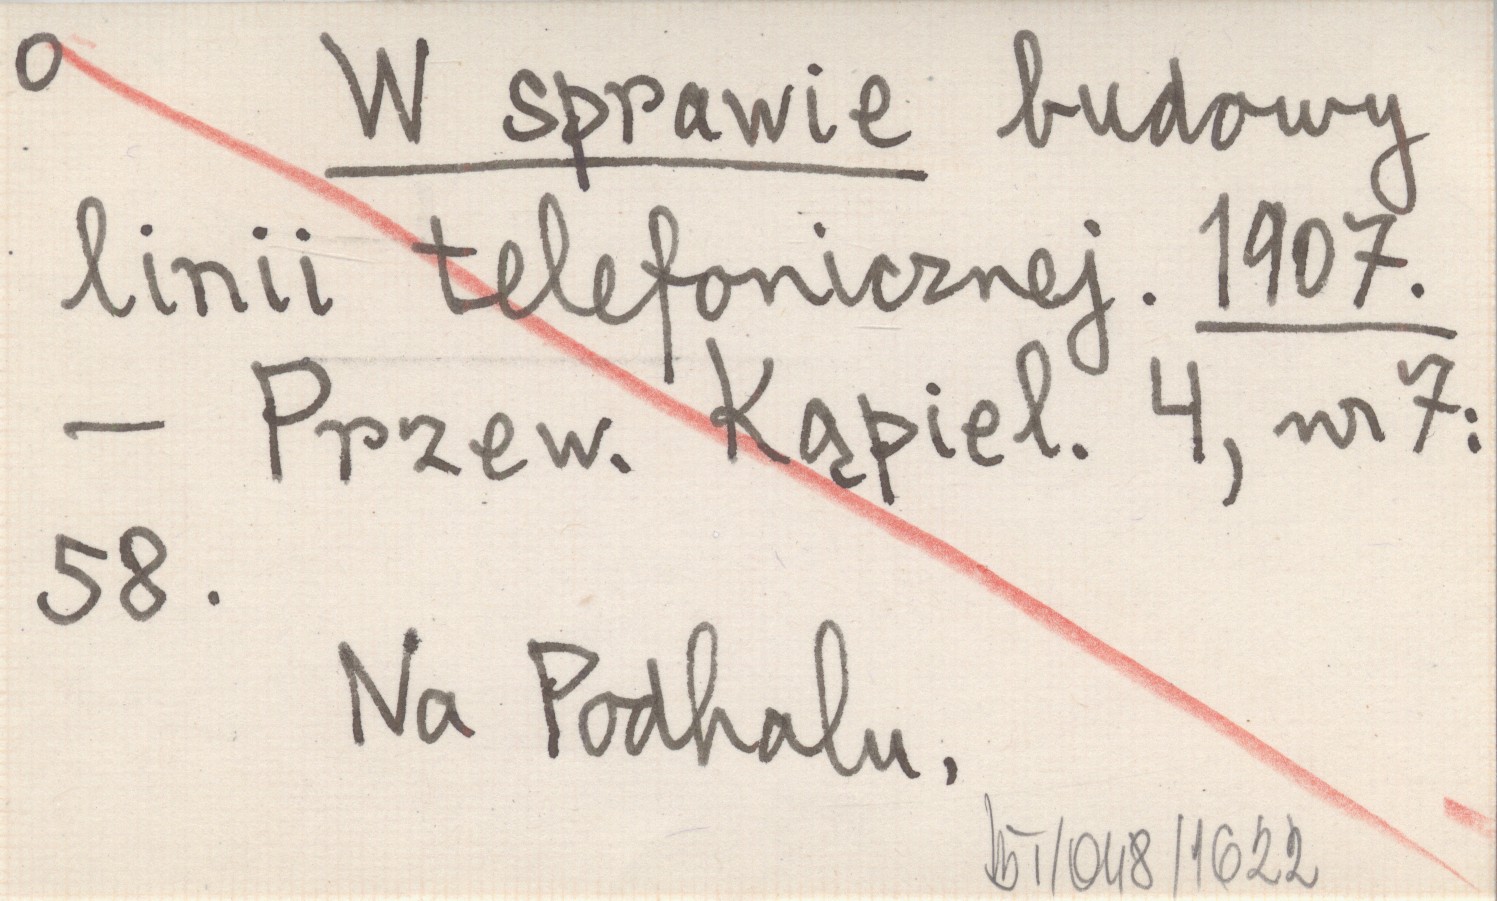 o W sprawie budowy
linii telefonicznej. 1907.
— Przew. Kąpiel. 4, nr 7:
58.
Na Podhalu.
/048/1622